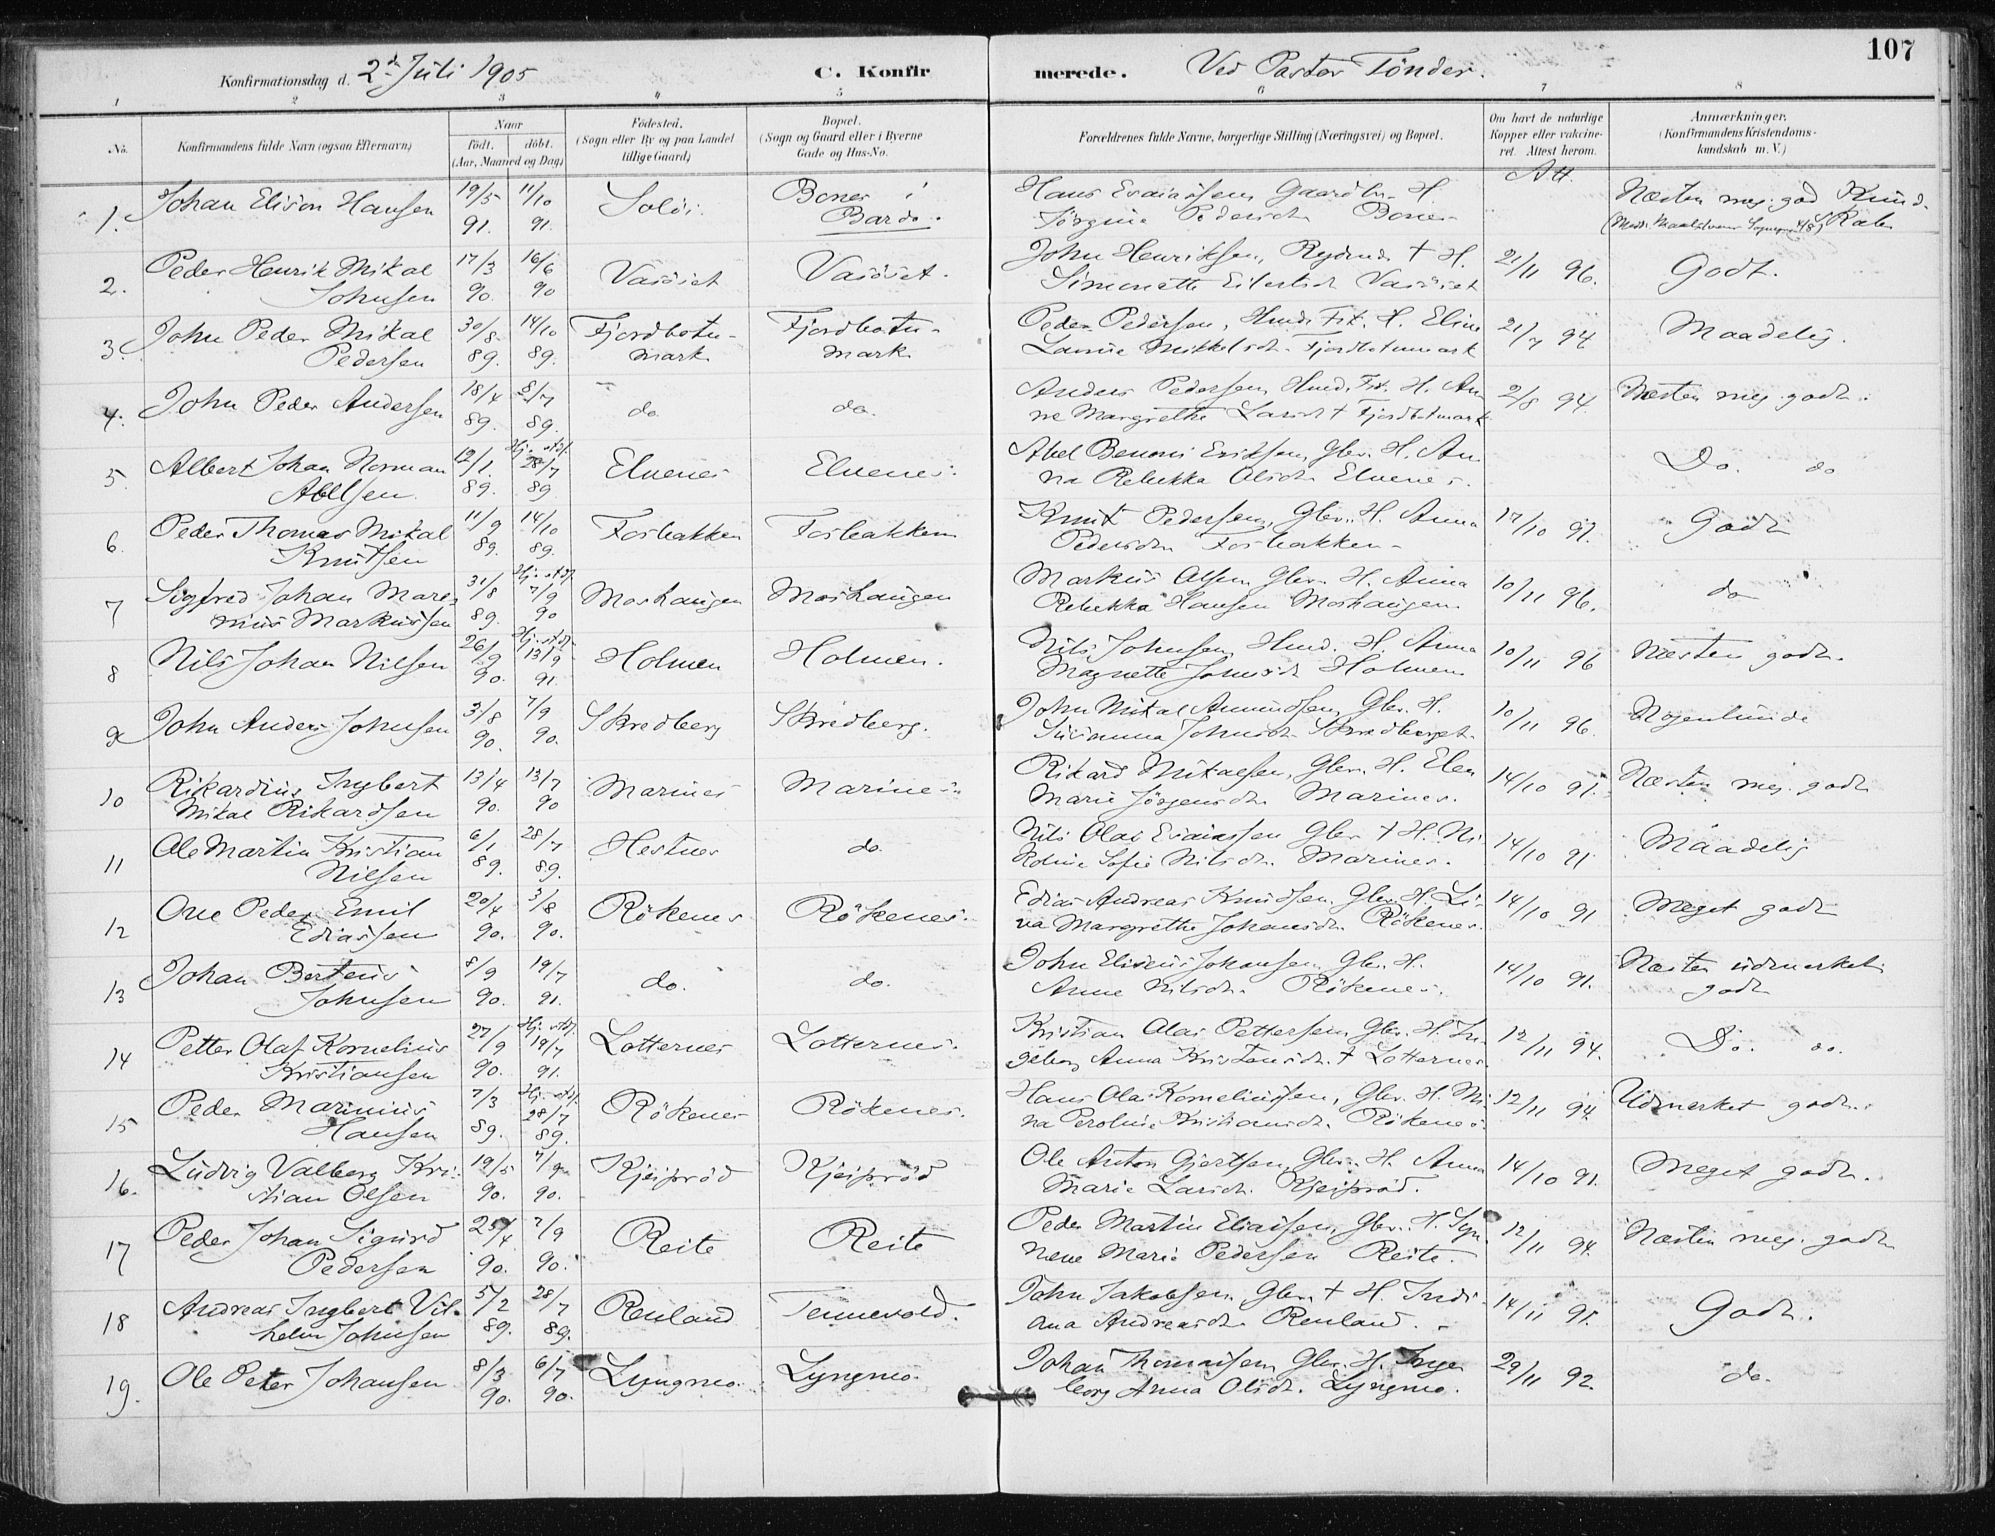 107
Konfirmationsdag d. 2den Juli 1905 C. Konfirmerede. Ved Pastor Tönder.
1 2 3 4 5 6 7 8
No. Konfirmandens fulde Navn (ogsaa Efternavn) Naar födt. döbt. (Aar, Maaned og Dag) Födested. (Sogn eller By og paa Landet tillige Gaard) Bopæl. (Sogn og Gaard eller i Byerne Gade og Hus-No. Forældrenes fulde Navne, borgerlige Stilling (Næringsvei) og Bopæl. Om havt de naturlige Kopper eller vakcineret. Attest herom. Anmærkninger. (Konfirmandens Kristendomskundskab m. V.)
Att.
1. Johan Elison Hansen 19/5 91. 11/10 91. Solöi. Bones i Bardo. Hans Esaiassen Gaardbr. H.
Jörgine Pedersdr. Bones Næsten meg. god Kundskab
2. Peder Henrik Mikal 17/3 16/6 Vasöiet Vasöiet. John Henriksen, Rydnd. + H. 21/11 96. Godt.
Johnsen 90. 90 Simonette Eilertsdr. Vasöiet
3. John Peder Mikal 30/8 14/10 Fjordbotn- Fjordbotn- Peder Pedersen, Husm. Fix. H. Eline 21/7 94 Maadelig.
Pedersen 89. 89. mark mark Laurie Mikkelsdr. Fjordbotnmark
4. John Peder Andersen 18/4 89. 8/7 89. do do. Anders Pedersen, Husm. Fix. H. An 2/8 94. Næsten meg. godt.
ne Margrethe Larsdr + Fjordbotmark
5. Albert Johan Norman 12/1. Hj. stdf. 28/7 Elvenes Elvenes. Abel Benoni Eriksen, Gbr. H. An Do. do
Abelsen. 89. 89 na Rebekka Olsdr. Elvenes.
6. Peder Thomas Mikal 11/9 14/10 Fosbakken Fosbakken Knut Pedersen, Gbr. H. Anna 17/10 97. Godt
Knutsen 89. 89. Pedersdr. Fosbakken
7 Sigfred Johan Mari- 31/8 Hj. stdf. 7/9 Moshaugen Moshaugen Markus Olsen, Gbr. H. Anna 10/11 96. do
nius Markussen 89. 90 Rebekka Hansen Moshaugen
8 Nils Johan Nilsen 26/9 90. Hj. stdf. 13/9 91. Holmen Holmen. Nils Johnsen, Husm. H. Anna 10/11 96 Næsten godt.
Magnette Johnsdr. Holmen
9 John Anders Johnsen 31/8 90. 7/9 90. Skredberg Skredberg. John Mikal Amundsen, Gbr. H. 10/11 96. Nogenlunde
Susanna Johnsdr. Skredberget.
10 Rikardius Ingbert 13/4 13/7 Marines Marines. Rikard Mikalsen, Gbr. H. Elen 14/10 91. Næsten meg. godt
Mikal Rikardsen 90. 90 Marie Jörgensdr. Marines.
11 Ole Martin Kristian 6/1 28/7 Hestnes do. Nils Olai Esaiassen Gbr + H. Ni 14/10 91 Maadelig
Nilsen 89. 89. Roline Sofie Nilsdr. Marines.
12 Ove Peder Emil 20/4 3/8 Rökenes Rökenes. Edias Andreas Knudsen. Gbr. H. Li- 14/10 91 Meget godt
Ediassen 90. 90. va Margrethe Johansdr. Rökenes.
13 Johan Berteus 8/9 19/7 do. do. John Eliseus Johansen, Gbr. H. 14/10 91. Næsten udmerket
Johnsen 90. 91. Anne Nilsdr. Rökenes. godt
14 Petter Olaf Kornelius 27/9 Hj. stdf. 19/7 Lotternes Lotternes. Kristian Olai Pettersen, Gbr. H. In- 12/11 94. Do. do.
Kristiansen 90. 91. geborg Anna Kristensdr. + Lotternes
15 Peder Marinius 7/3 Hj. stdf. 28/7 Rökenes Rökenes. Hans Olai Korneliussen, Gbr. H. Ni 12/11 94 Udmerket godt.
Hansen 89. 89. na Peroline Kristiansdr. Rökenes.
16. Ludvig Valberg Kri- 19/5 Kjeiprød Kjeiprød Ole Anton Gjertsen, Gbr. H. Anna 14/10 91. Meget godt.
stian Olsen 90. 90. Marie Larsdr. Kjeiprød.
17 Peder Johan Sigurd 25/4 7/9 Reite Reite Peder Martin Eliassen, Gbr. H. Syn- 12/11 94. Næsten meg. godt
Pedersen 90. 90. neve Marie Pedersen Reite.
18 Andreas Ingbert Vil- 5/2 28/7 Renland Tennevold. John Jakobsen, Gbr. + H. Indi- 14/11 95. Godt.
helm Johnsen 89. 89. ana Andreasdr. Renland.
19. Ole Peter Johansen 8/3 90. 6/7 90. Lyngmo. Lyngmo. Johan Thomassen, Gbr. H. Inge 29/11 92. do.
borg Anna Olsdr. Lyngmo.